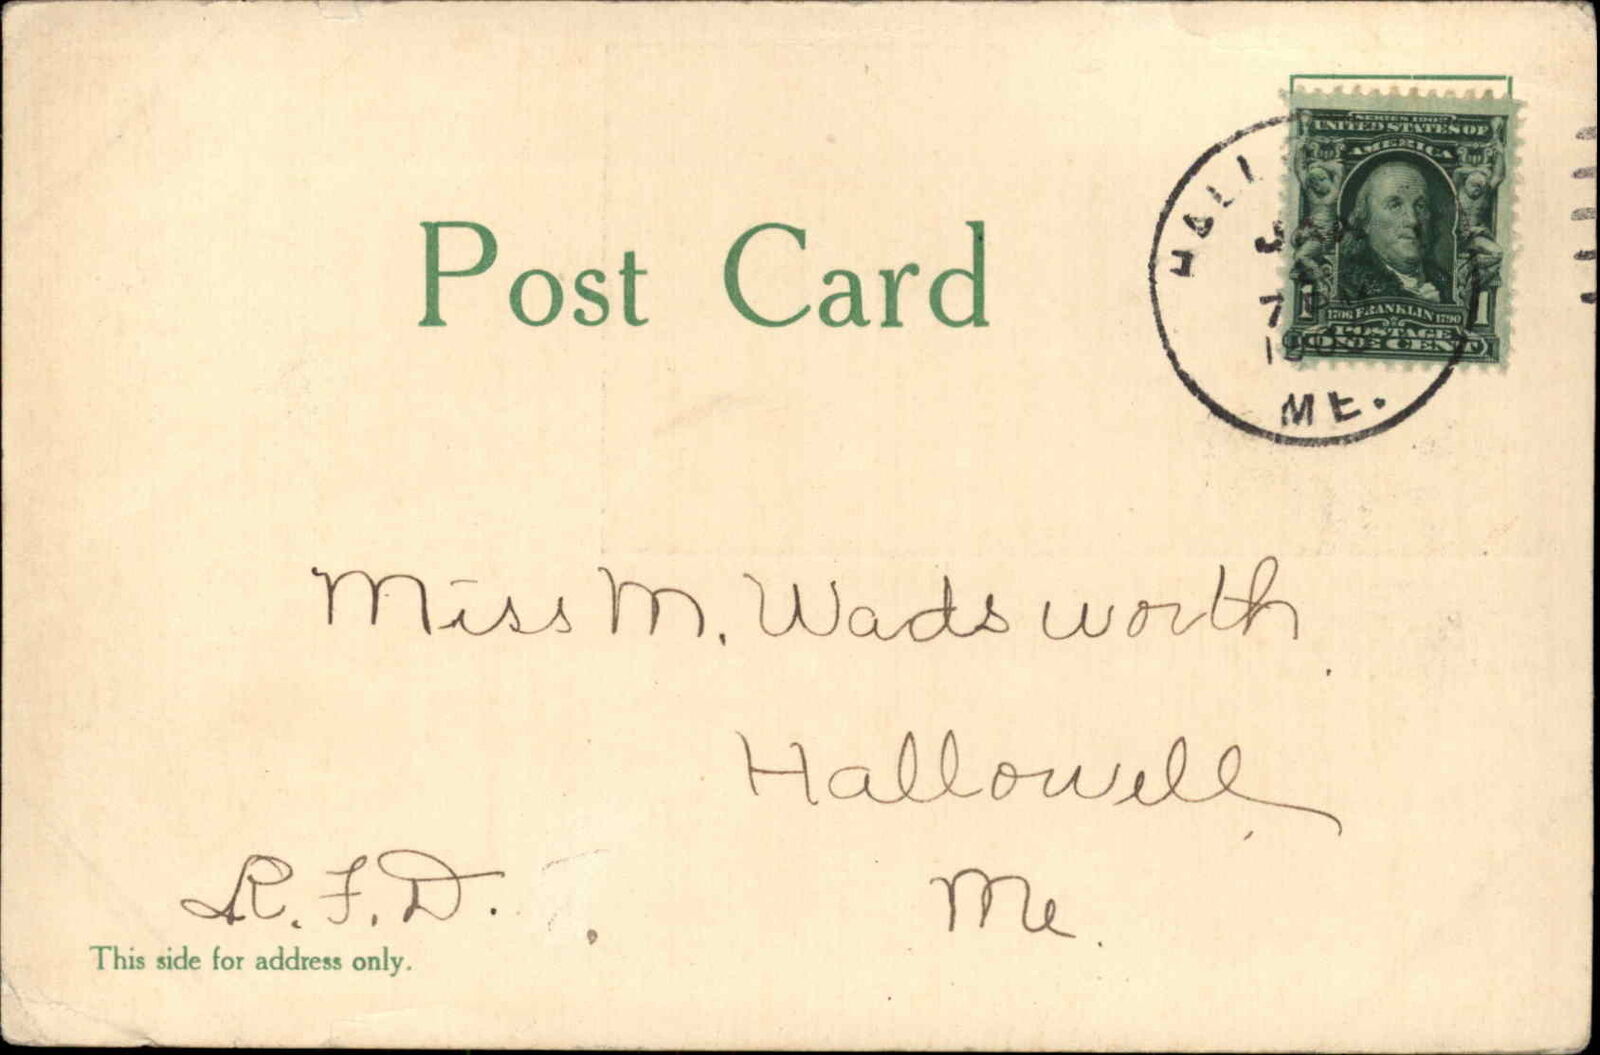 Post Card
SERIES 1902
UNITED STATES OF
AMERICA
1706 FRANKLIN 1790
POSTAGE
1 ONE CENT 1
HALL
7
ME.
Miss M. Wadsworth
Hallowell
Me.
R.F.D.
This side for address only.